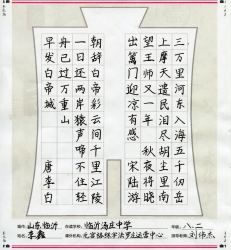 三万里河东入海五千仞岳
上摩天遗民泪尽胡尘里南
望王师又一年 秋夜将晓
出篱门迎凉有感 宋 陆游
朝辞白帝彩云间千里江陵
一日还两岸猿声啼不住轻
舟已过万重山
早发白帝城 唐 李白
山东临沂 在读学校：临沂汤庄中学 年级：八.二
姓名：李鑫 元宫格练字法罗庄运营中心 指导老师：刘伟杰